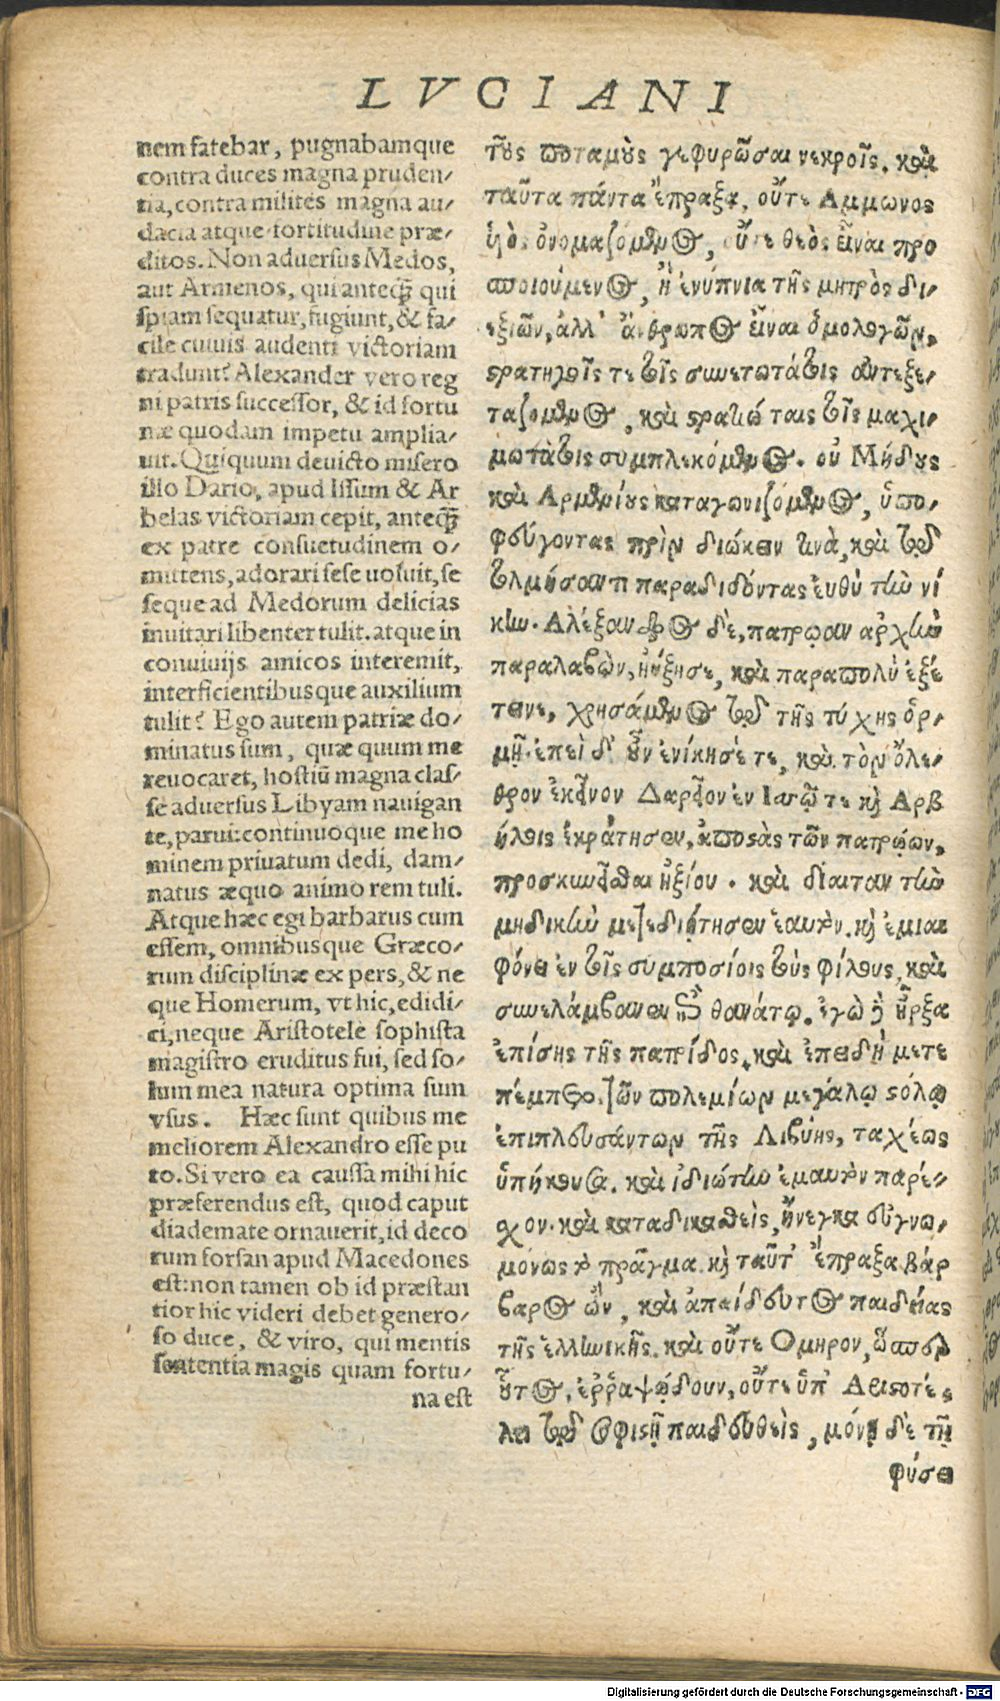 LVCIANI
nem fatebar, pugnabamque
contra duces magna pruden/
tia, contra milites magna au/
dacia atque fortitudine præ/
ditos. Non aduersus Medos,
aut Armenos, qui anteq̃ qui
spiam sequatur, fugiunt, & fa/
cile cuiuis audenti victoriam
tradunt? Alexander vero reg
ni patris successor, & id fortu
næ quodam impetu amplia/
uit. Qui quum deuicto misero
illo Dario, apud Issum & Ar
belas victoriam cepit, anteq̃
ex patre consuetudinem o/
mittens, adorari sese uoluit, se
seque ad Medorum delicias
inuitari libenter tulit. atque in
conuiuijs amicos interemit,
interficientibusque auxilium
tulit? Ego autem patriæ do/
minatus sum, quæ quum me
reuocaret, hostiū magna clas/
se aduersus Libyam nauigan
te, parui: continuoque me ho
minem priuatum dedi, dam/
natus æquo animo rem tuli.
Atque hæc egi barbarus cum
essem, omnibusque Græco/
rum disciplinæ ex pers, & ne
que Homerum, vt hic, edidi/
ci, neque Aristotele sophista
magistro eruditus fui, sed so/
lum mea natura optima sum
vsus. Hæc sunt quibus me
meliorem Alexandro esse pu
to. Si vero ea caussa mihi hic
præferendus est, quod caput
diademate ornauerit, id deco
rum forsan apud Macedones
est: non tamen ob id præstan
tior hic videri debet genero/
so duce, & viro, qui mentis
sententia magis quam fortu/
na est
τοὺς ποταμοὺς γεφυρῶσαι νεκροῖς. καὶ
ταῦτα πάντα ἔπραξα, οὔτε Αμμωνος
ἡὸς ὀνομαζόμενος, οὔτε θεὸς εἶναι προ
σποιούμενος, ἢ ἐνύπνια τῆς μητρὸς δι/
εξιῶν, ἀλλ' ἄνθρωπος εἶναι ὁμολογῶν,
στρατηγοῖς τε τοῖς συνετωτάτοις ἀντεξε/
ταζόμενος, καὶ στρατιώταις τοῖς μαχι/
μωτάτοις συμπλεκόμενος. οὐ Μήδους
καὶ Αρμενίους καταγωνιζόμενος, ὑπο/
φεύγοντας πρὶν διώκειν τινὰ, καὶ τῷ
τολμήσαντι παραδιδόντας εὐθὺ τὴν νί
κην. Αλέξανδρος δὲ, πατρῴαν ἀρχὴν
παραλαβὼν, ηὔξησε, καὶ παραπολὺ ἐξέ
τεινε, χρησάμενος τῇ τῆς τύχης ὁρ/
μῇ. ἐπεὶ δ' οὖν ἐνίκησέ τε, καὶ τὸν ὄλε/
θρον ἐκεῖνον Δαρεῖον ἐν Ισσῷ τε κὶ Αρβ
ήλοις ἐκράτησεν, ἀποστὰς τῶν πατρῴων,
προσκυνεῖσθαι ἠξίου. καὶ δίαιταν τὴν
μηδικὴν μετεδιῄτησεν ἑαυτὸν. κὶ ἐμιαι
φόνει ἐν τοῖς συμποσίοις τοὺς φίλους, καὶ
συνελάμβανεν ἐπὶ θανάτῳ. ἐγὼ δὲ ἦρξα
ἐπίσης τῆς πατρίδος. καὶ ἐπειδὴ μετε
πέμπετο. τῶν πολεμίων μεγάλῳ στόλῳ
ἐπιπλευσάντων τῆς Λιβύης, ταχέως
ὑπήκουσα. καὶ ἰδιώτην ἐμαυτὸν παρέ/
σχον. καὶ καταδικασθεὶς, ἤνεγκα εὐγνω/
μόνως τὸ πρᾶγμα. κὶ ταῦτ' ἔπραξα βάρ
βαρος ὢν, καὶ ἀπαίδευτος παιδείας
τῆς ἑλληνικῆς. καὶ οὔτε Ομηρον, ὥσπερ
οὗτος, ἐῤῥαψῴδουν, οὔτε ὑπ' Αριστοτέ
λει τῷ σοφιστῇ παιδευθεὶς, μόνῃ δὲ τῇ
φύσει
Digitalisierung gefördert durch die Deutsche Forschungsgemeinschaft - DFG